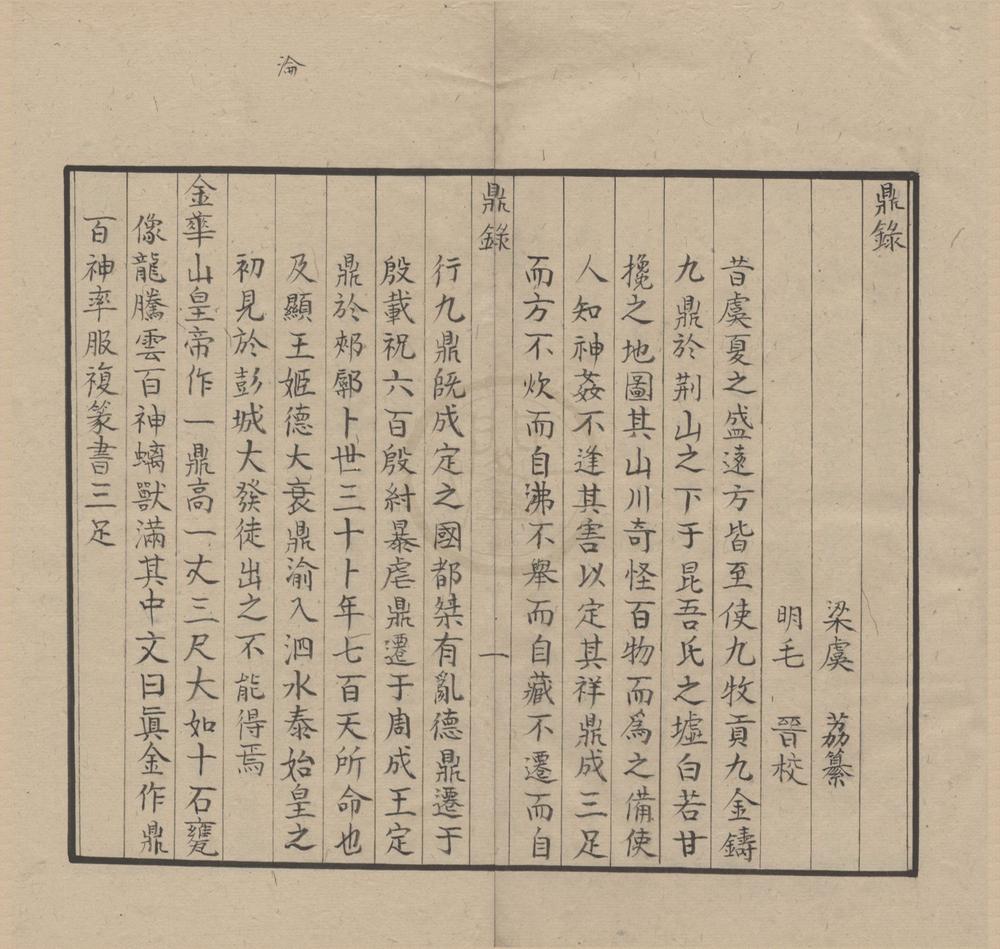 淪
鼎錄
梁虞　荔纂
明毛　晉校
昔虞夏之盛遠方皆至使九牧貢九金鑄
九鼎於荆山之下于昆吾氏之墟白若甘
攙之地圖其山川奇怪百物而爲之備使
人知神姦不逢其害以定其祥鼎成三足
而方不炊而自沸不舉而自藏不遷而自
鼎錄　一
行九鼎旣成定之國都桀有亂德鼎遷于
殷載祀六百殷紂暴虐鼎遷于周成王定
鼎於郟鄏卜世三十卜年七百天所命也
及顯王姬德大衰鼎淪入泗水泰始皇之
初見於彭城大發徒出之不能得焉
金華山皇帝作一鼎高一丈三尺大如十石甕
像龍騰雲百神螭獸滿其中文曰眞金作鼎
百神率服複篆書三足